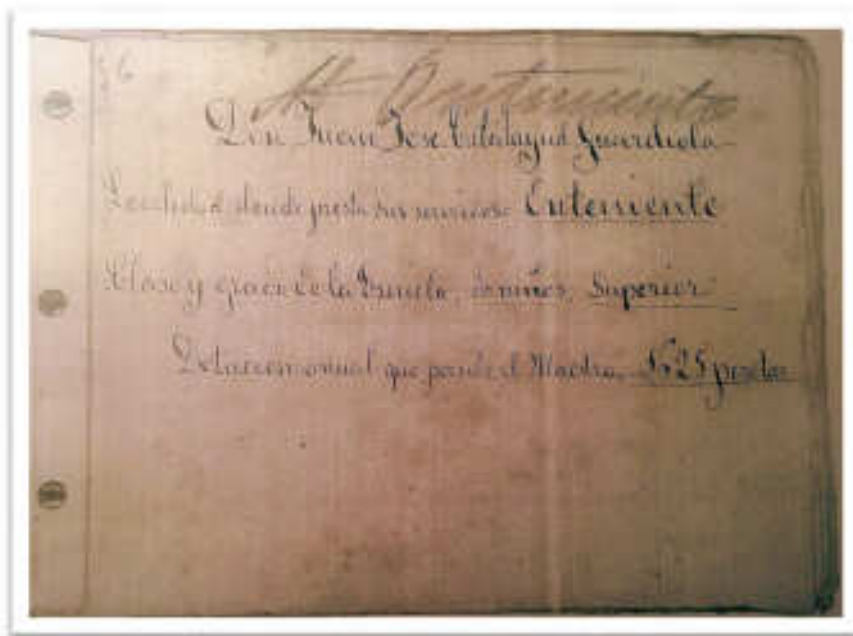 Onteniente
Don Juan José Calatayud Guardiola
Localidad donde presta sus servicios Enteniente
Clase y grado de la Escuela, de niños, Superior
Dotacion anual que percibe el Maestro, 1625 pesetas